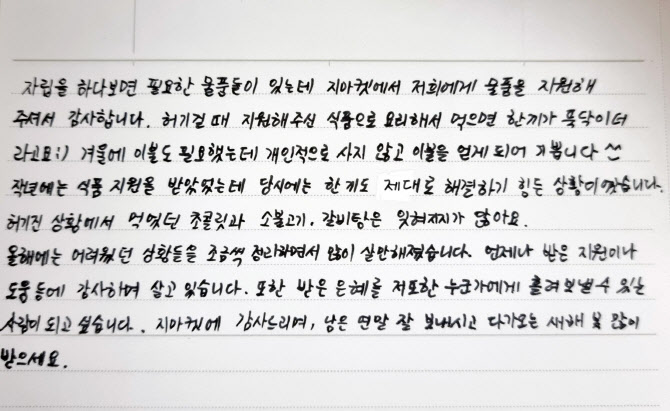 자립을 하다보면 필요한 물품들이 있는데 지마켓에서 저희에게 물품을 지원해
주셔서 감사합니다. 허기질 때 지원해주신 식품으로 요리해서 먹으면 한끼가 뚝딱이더
라고요:) 겨울에 이불도 필요했는데 개인적으로 사지 않고 이불을 얻게 되어 기쁩니다
작년에는 식품 지원을 받았었는데 당시에는 한끼도 제대로 해결하기 힘든 상황이었습니다.
허기진 상황에서 먹었던 초콜릿과 소불고기, 갈비탕은 잊혀지지가 않아요.
올해에는 어려웠던 상황들을 조금씩 정리하면서 많이 살만해졌습니다. 언제나 받은 지원이나
도움들에 감사하며 살고 있습니다. 또한 받은 은혜를 저또한 누군가에게 흘려보낼 수 있는
사람이 되고 싶습니다. 지마켓에 감사드리며, 남은 연말 잘 보내시고 다가오는 새해 복 많이
받으세요.